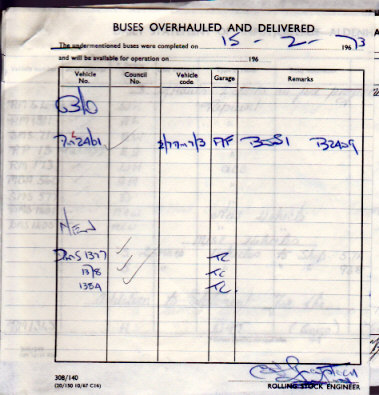 BUSES OVERHAULED AND DELIVERED
The undermentioned buses were completed on 15 - 2 - 1973
and will be available for operation on 196
Vehicle No. Council No. Vehicle code Garage Remarks
O/O
2461 ✓ B2409
NEW
DMS 1377 ✓ TC
1378 ✓ TC
138A ✓ TC
308/140
(20/150 10/67 C16)
ROLLING STOCK ENGINEER